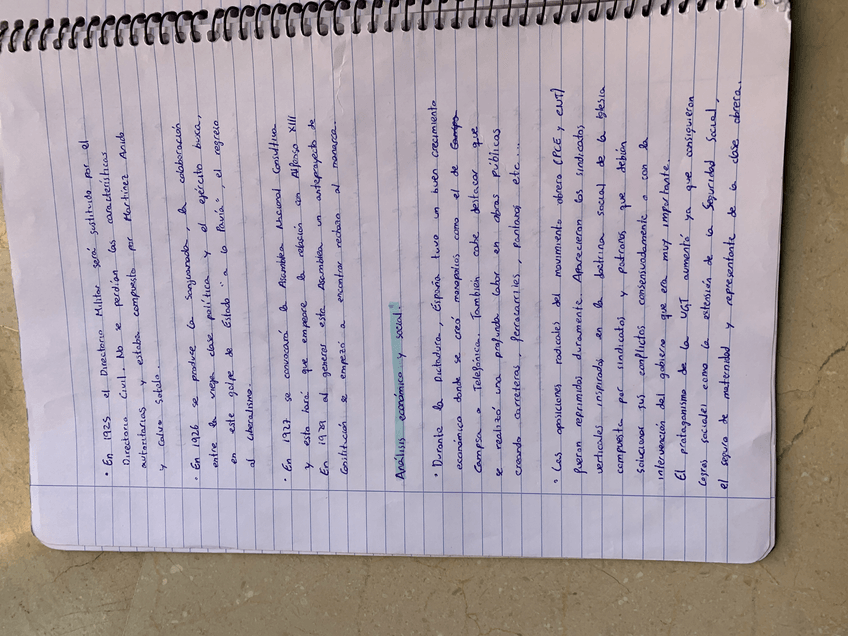 • En 1925 el Directorio Militar será sustituido por el
Directorio Civil. No se perdían las características
autoritarias y estaba compuesto por Martínez Anido
y Calvo Sotelo.
• En 1926 se produce la Sanjuanada, la colaboración
entre la vieja clase política y el ejército busca,
en este golpe de Estado "a lo Pavía", el regreso
al liberalismo.
• En 1927 se convocará la Asamblea Nacional Consultiva
y esto hará que empeore la relación con Alfonso XIII
En 1929 al generar esta Asamblea un anteproyecto de
Constitución se empezó a encontrar rechazo al monarca.
Análisis económico y social:
• Durante la Dictadura, España tuvo un buen crecimiento
económico donde se creó monopolios como el de
Campsa o Telefónica. También cabe destacar que
se realizó una profunda labor en obras públicas
creando carreteras, ferrocarriles, pantanos etc...
• Las oposiciones radicales del movimiento obrero (PCE y CNT)
fueron reprimidos duramente. Aparecieron los sindicatos
verticales inspirados en la doctrina social de la Iglesia
compuesta por sindicatos y patronos que debían
solucionar sus conflictos consensuadamente o con la
intervención del gobierno que era muy importante.
El protagonismo de la UGT aumentó ya que consiguieron
logros sociales como la extensión de la Seguridad Social,
el seguro de maternidad y representante de la clase obrera.